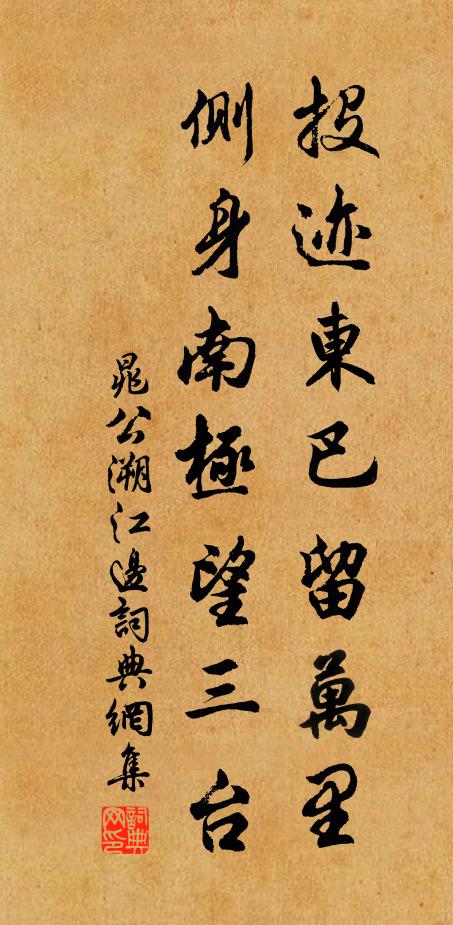 投迹東巴留萬里
側身南極望三台
晁公溯江邊詞典網集
詞典网印